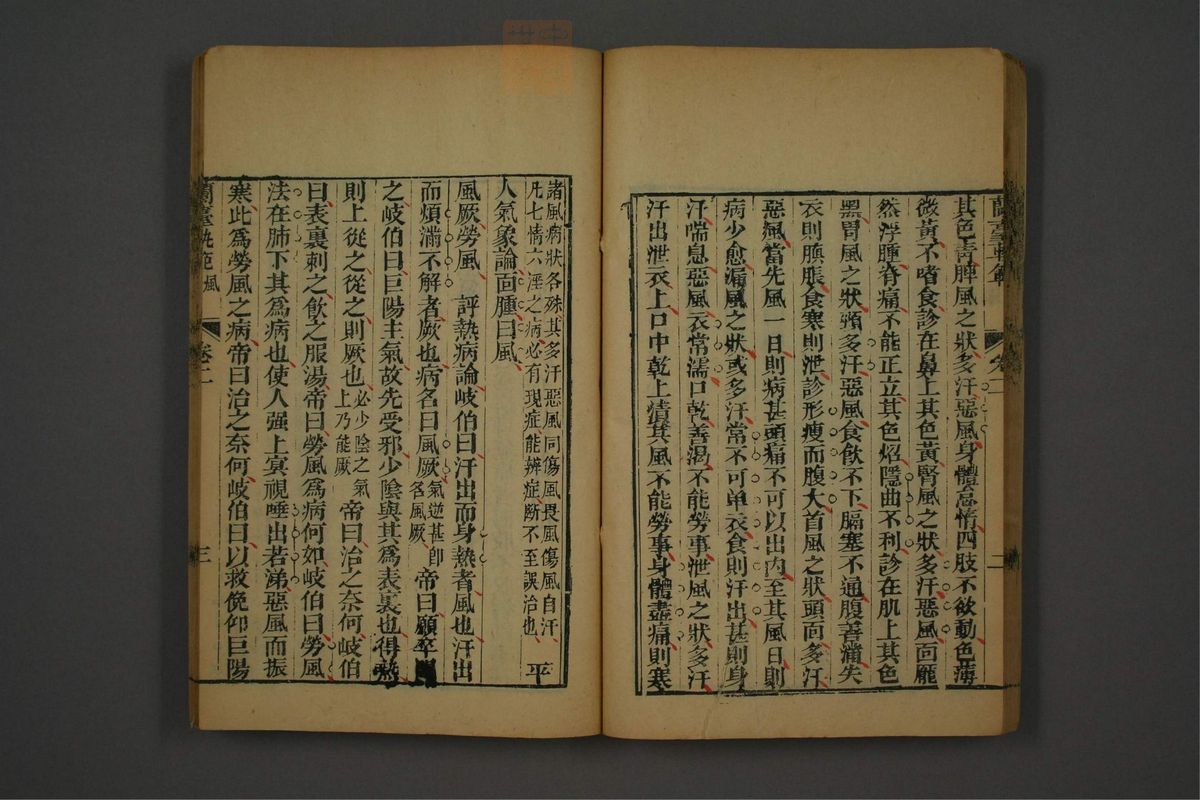 蘭臺軌範 卷二 二
其色青脾風之狀多汗惡風身體怠惰四肢不欲動色薄
微黃不嗜食診在鼻上其色黃腎風之狀多汗惡風面龎
然浮腫脊痛不能正立其色炲隱曲不利診在肌上其色
黑胃風之狀頸多汗惡風食飲不下膈塞不通腹善滿失
衣則䐜脹食寒則泄診形瘦而腹大首風之狀頭面多汗
惡風當先風一日則病甚頭痛不可以出內至其風日則
病少愈漏風之狀或多汗常不可单衣食則汗出甚則身
汗喘息惡風衣常濡口乾善渴不能勞事泄風之狀多汗
汗出泄衣上口中乾上漬其風不能勞事身體盡痛則寒
諸風病狀各殊其多汗惡風同傷風畏風傷風自汗
凡七情六淫之病必有現症能辨症斷不至誤治也 平
人氣象論面腫曰風
風厥勞風 評熱病論岐伯曰汗出而身熱者風也汗出
而煩滿不解者厥也病名曰風厥氣逆甚卽名風厥帝曰願卒聞
之岐伯曰巨陽主氣故先受邪少陰與其為表裏也得熱
則上從之從之則厥也必少陰之氣上乃能厥帝曰治之奈何岐伯
曰表裏刺之飲之服湯帝曰勞風為病何如岐伯曰勞風
法在肺下其為病也使人强上冥視唾出若涕惡風而振
寒此為勞風之病帝曰治之奈何岐伯曰以救俛仰巨陽
蘭臺軌範 風 卷二 三